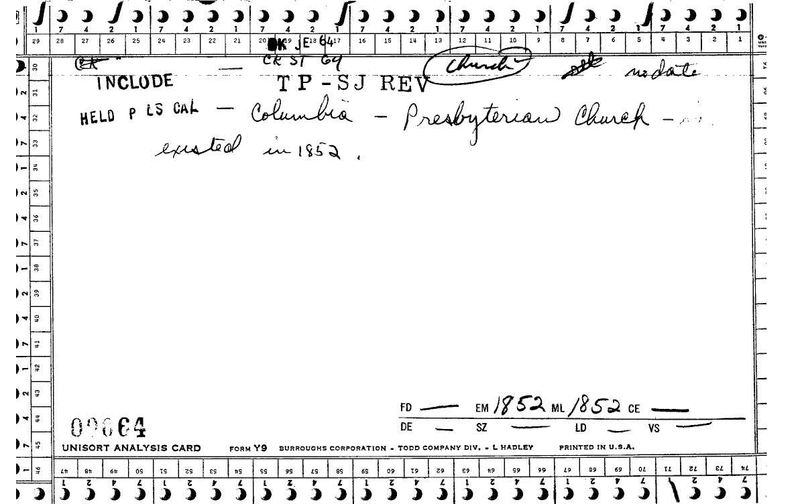 7 4 2 1 7 4 2 1 7 4 2 1 7 4 2 1 7 4 2 1 7 4 2 1 7 4 2 1
29 28 27 26 25 24 23 22 21 20 19 18 17 16 15 14 13 12 11 10 9 8 7 6 5 4 3 2 1
OK JE 64
CK ST 69
Church no date
INCLUDE — TP-SJ REV
HELD P LS CAL — Columbia — Presbyterian Church —
existed in 1852.
30 31 32 33 34 35 36 37 38 39 40 41 42 43 44 45 46
FD — EM 1852 ML 1852 CE —
DE — SZ — LD — VS —
09664
UNISORT ANALYSIS CARD FORM Y9 BURROUGHS CORPORATION - TODD COMPANY DIV. - L HADLEY PRINTED IN U.S.A.
47 48 49 50 51 52 53 54 55 56 57 58 59 60 61 62 63 64 65 66 67 68 69 70 71 72 73 74